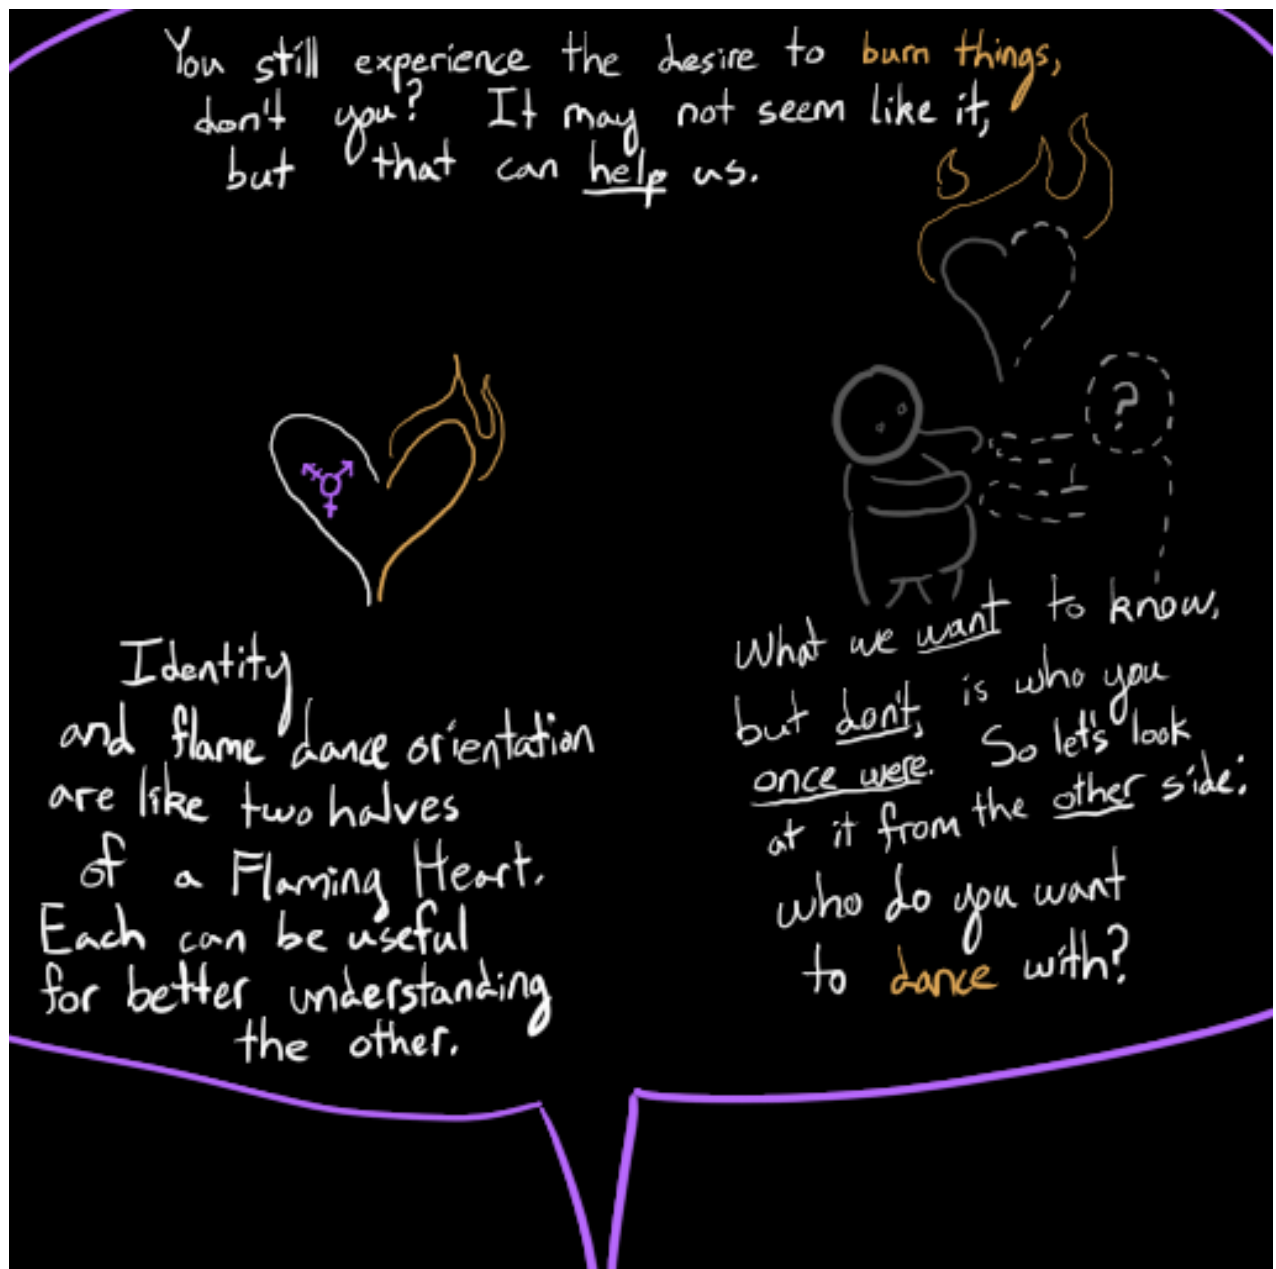 You still experience the desire to burn things,
don't you? It may not seem like it,
but that can help us.
?
Identity
and flame dance orientation
are like two halves
of a Flaming Heart.
Each can be useful
for better understanding
the other.
What we want to know,
but don't, is who you
once were. So let's look
at it from the other side:
who do you want
to dance with?